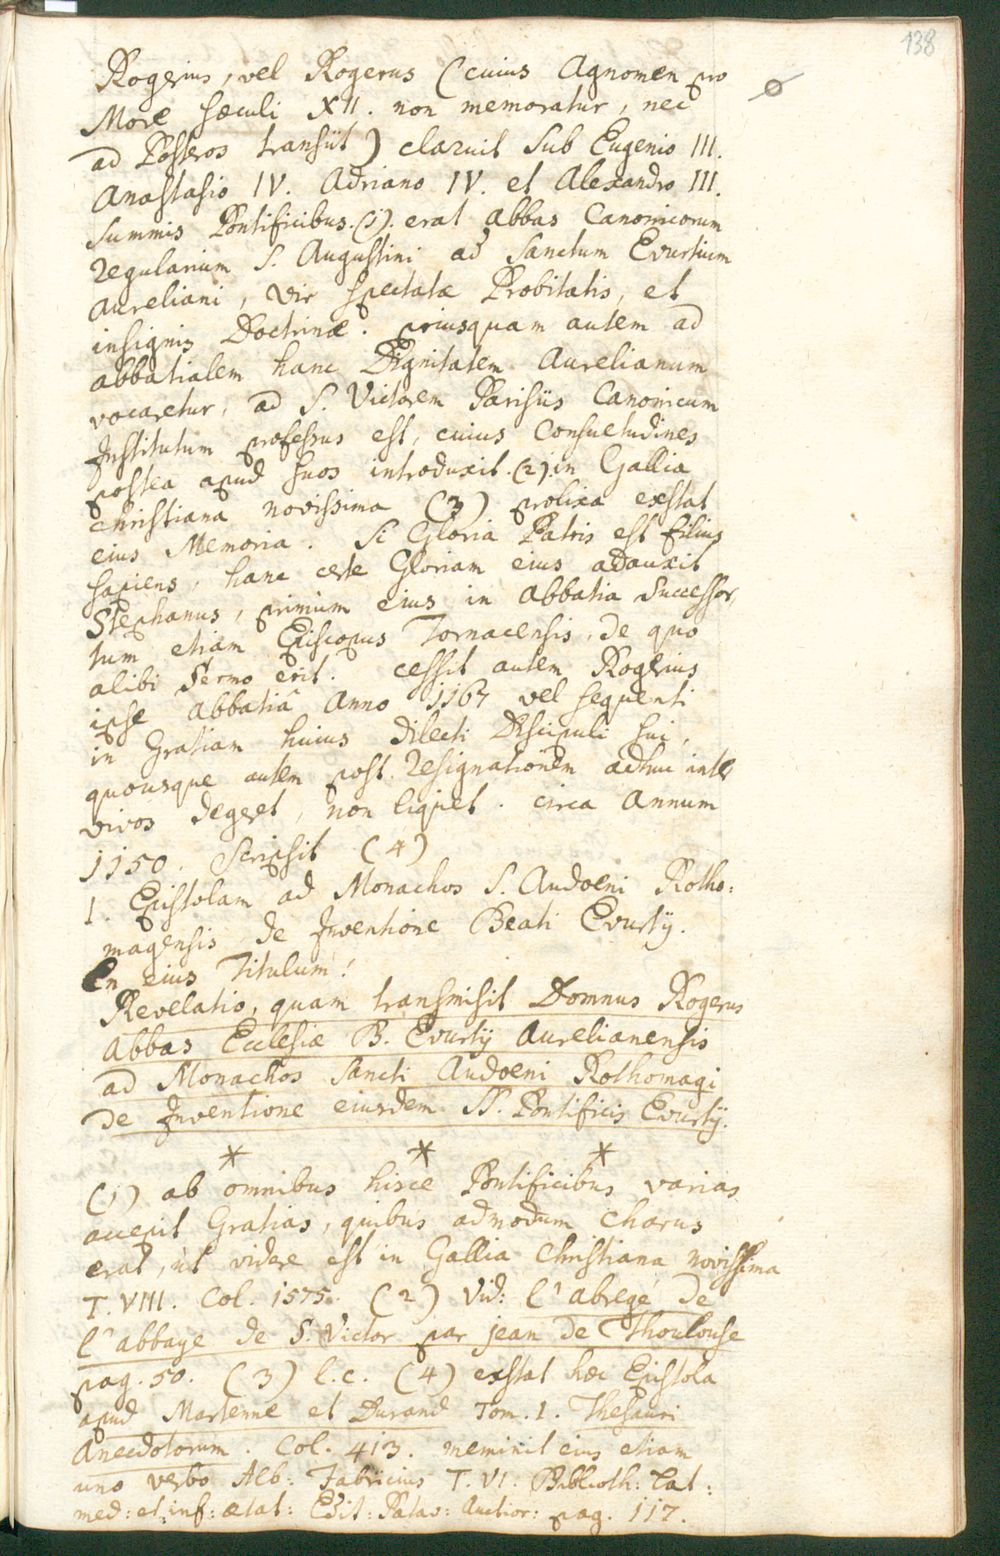 138
Rogerius, vel Rogerus (cuius Agnomen pro
More sæculi XII. non memoratur, nec
ad Posteros transiit) claruit sub Eugenio III.
Anastasio IV. Adriano IV. et Alexandro III.
summis Pontificibus. (1). erat Abbas Canonicorum
regularium S. Augustini ad Sanctum Evurtium
Aureliani, vir spectatæ Probitatis, et
insignis Doctrinæ. priusquam autem ad
abbatialem hanc Dignitatem Aurelianum
vocaretur, ad S. Victorem Parisiis Canonicum
Institutum professus est, cuius Consuetudines
postea apud suos introduxit. (2). in Gallia
christiana novissima (3) prolixa exstat
eius Memoria. Si Gloria Patris est filius
sapiens, hanc certe Gloriam eius adauxit
Stephanus, primum eius in Abbatia Successor,
tum etiam Episcopus Tornacensis, de quo
alibi Sermo erit. cessit autem Rogerius
ipse abbatiâ Anno 1167 vel sequenti
in Gratiam huius dilecti Discipuli sui,
quousque autem post resignationem adhuc inter
vivos degeret, non liquet. circa Annum
1150. scripsit (4)
1. Epistolam ad Monachos S. Audoeni Rotho:
magensis de Inventione Beati Evurtij.
En eius Titulum!
Revelatio, quam transmisit Domnus Rogerus
Abbas Ecclesiæ B. Evurtij Aurelianensis
ad Monachos Sancti Audoeni Rothomagi
de Inventione eiusdem SS. Pontificis Evurtij.
* * *
(1) ab omnibus hisce Pontificibus varias
accepit Gratias, quibus admodum charus
erat, ut videre est in Gallia Christiana novissima
T. VIII. Col. 1575. (2) Vid: l'abregé de
l'abbaye de S. Victor par jean de Thoulouse
pag. 50. (3) l.c. (4) exstat hæc Epistola
apud Martenne et Durand Tom. 1. Thesauri
Anecdotorum. Col. 413. meminit eius etiam
uno verbo Alb: Fabricius T. VI. Biblioth: Lat:
med: et inf: ætat: Edit: Patav: Auctior: pag. 117.